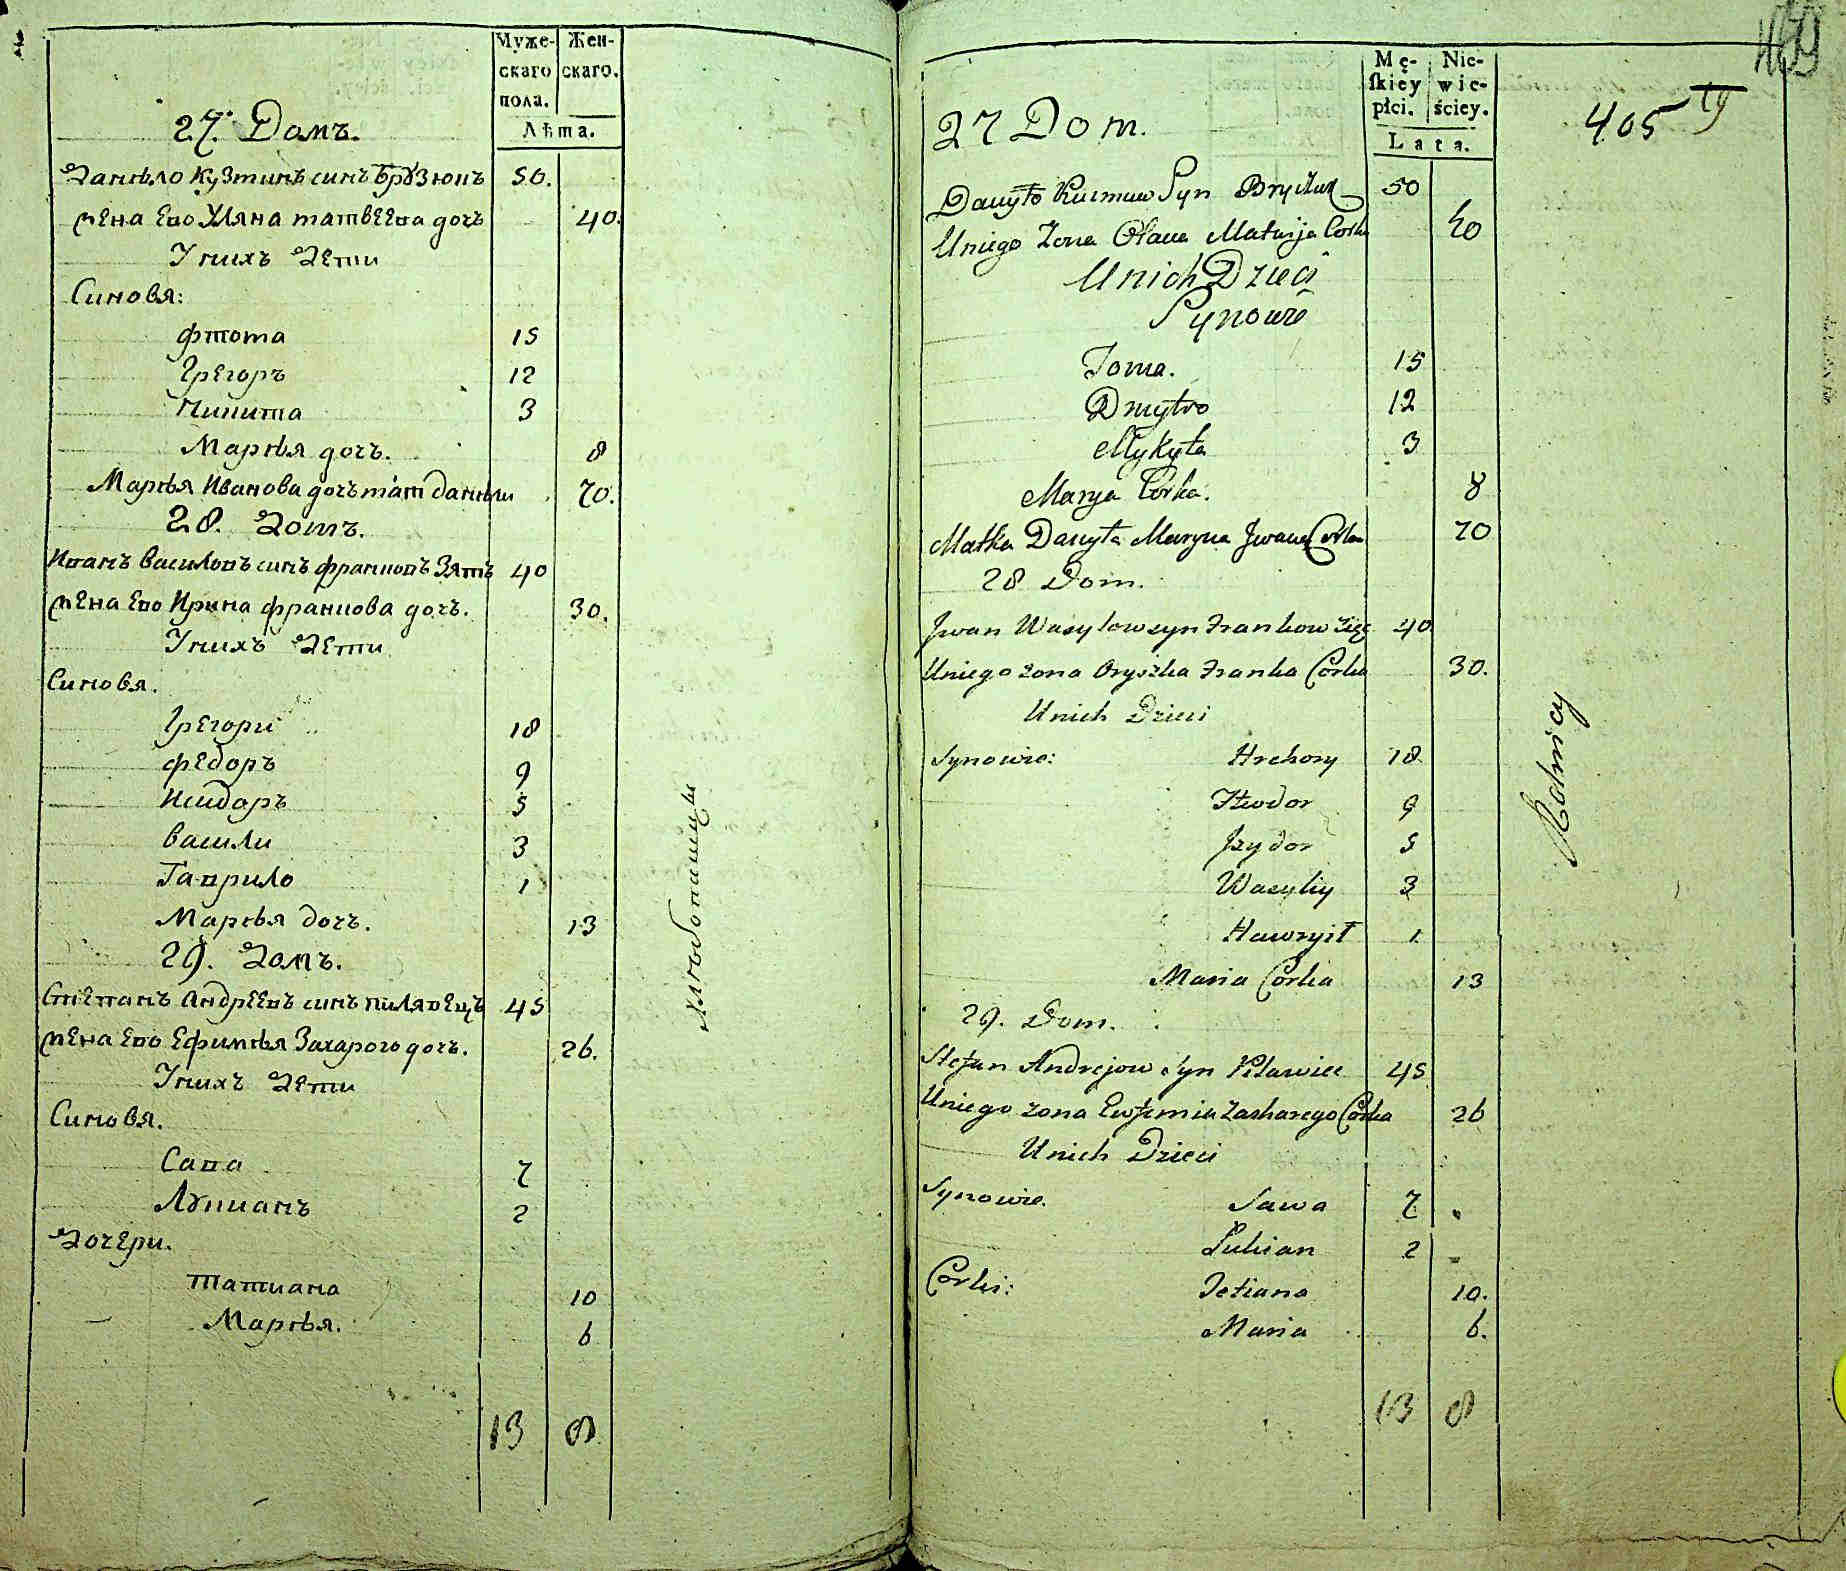 Муже-
скаго
пола.
Жен-
скаго.
Лѣта.
27. Домъ.
Данѣло Кузминъ синъ Брузюнъ 50.
жена Ево Уляна матвеева дочъ 40.
У нихъ Дети
Синовя:
фтома 15
Грегоръ 12
Никита 3
Марѣя дочъ. 8
Марѣя Иванова дочъ мат данѣли 70.
28. Домъ.
Иванъ василовъ синъ франковъ Зять 40
жена Ево Ирина францова дочъ. 30.
У нихъ Дети
Синовя.
Грегори 18
федоръ 9
Исидоръ 5
васили 3
Гаврило 1
Марѣя дочъ. 13
29. Домъ.
Степанъ Андреевъ синъ пилявецъ 45
жена Ево Ефимѣя Захарого дочъ. 26.
У нихъ Дети
Синовя.
Сава 7
Лукианъ 2
Дочери.
Татиана 10
Марѣя. 6
13 8
Хлѣбопашцы
Mę-
skiey
płci.
Nie-
wie-
ściey.
Lata.
405
27 Dom.
Danyło Kuzmin Syn 50
Uniego Zona Olana Matwija Corka 40
Unich Dzieci
Synowie
Toma. 15
Dmytro 12
Mykyta 3
Marya Corka. 8
Matka Danyła Maryna Jwana Corka 70
28 Dom.
Jwan Wasylow syn Frankow Zięc 40
Uniego zona Oryszka Franka Corka 30.
Unich Dzieci
Synowie: Hrehory 18
Fteodor 9
Jzydor 5
Wasyliy 3
Hawryił 1
Maria Corka 13
29. Dom.
Stefan Andrejow Syn Pilawiec 45
Uniego zona Ewfemia Zacharego Corka 26
Unich Dzieci
Synowie. Sawa 7
Lukian 2
Corki: Tetiana 10.
Maria 6.
13 8
Rolnicy